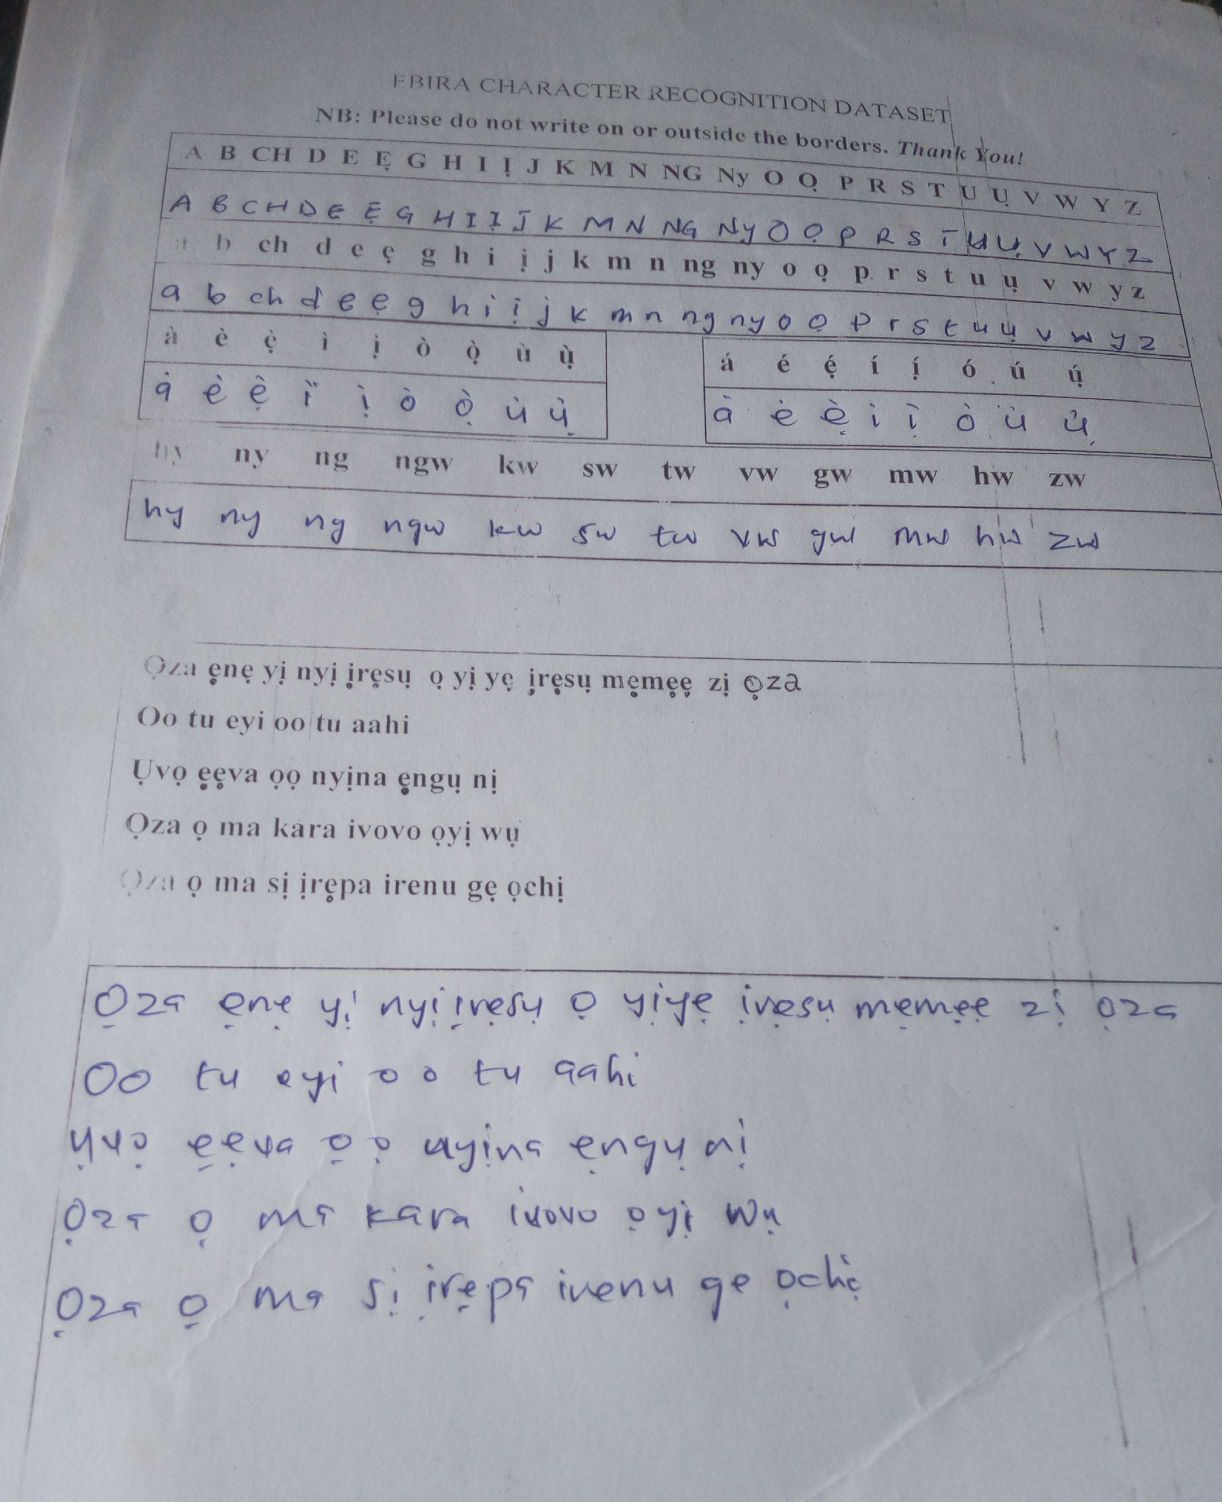 EBIRA CHARACTER RECOGNITION DATASET
NB: Please do not write on or outside the borders. Thank You!
A B CH D E Ẹ G H I Ị J K M N NG Ny O Ọ P R S T U Ụ V W Y Z
A B C H D E Ẹ G H I Ị J K M N NG Ny O Ọ P R S T U Ụ V W Y Z
a b ch d e ẹ g h i ị j k m n ng ny o ọ p r s t u ụ v w y z
a b ch d e ẹ g h i ị j k m n ng ny o ọ p r s t u ụ v w y z
à è ẹ̀ ì ị̀ ò ọ̀ ù ụ̀
á é ẹ́ í ị́ ó ú ụ́
à è ẹ̀ ì ị̀ ò ọ̀ ù ụ̀
à è ẹ̀ ì ị̀ ò ù ụ̀
hy ny ng ngw kw sw tw vw gw mw hw zw
hy ny ng ngw kw sw tw vw gw mw hw zw
Ọza ẹnẹ yị nyị ịrẹsụ ọ yị yẹ ịrẹsụ mẹmẹẹ zị ọza
Oo tu eyi oo tu aahi
Ụvọ ẹẹva ọọ nyịna ẹngụ nị
Ọza ọ ma kara ivovo ọyị wụ
Ọza ọ ma sị ịrẹpa irenu gẹ ọchị
Ọza ẹnẹ yị nyị ịrẹsụ ọ yịyẹ ịrẹsụ mẹmẹẹ zị ọza
Oo tu eyi oo tu aahi
Ụvọ ẹẹva ọ ọ nyịna ẹngụ nị
Ọza ọ ma kara ivovo ọyị wụ
Ọza ọ ma sị ịrẹpa irenu ge ọchị